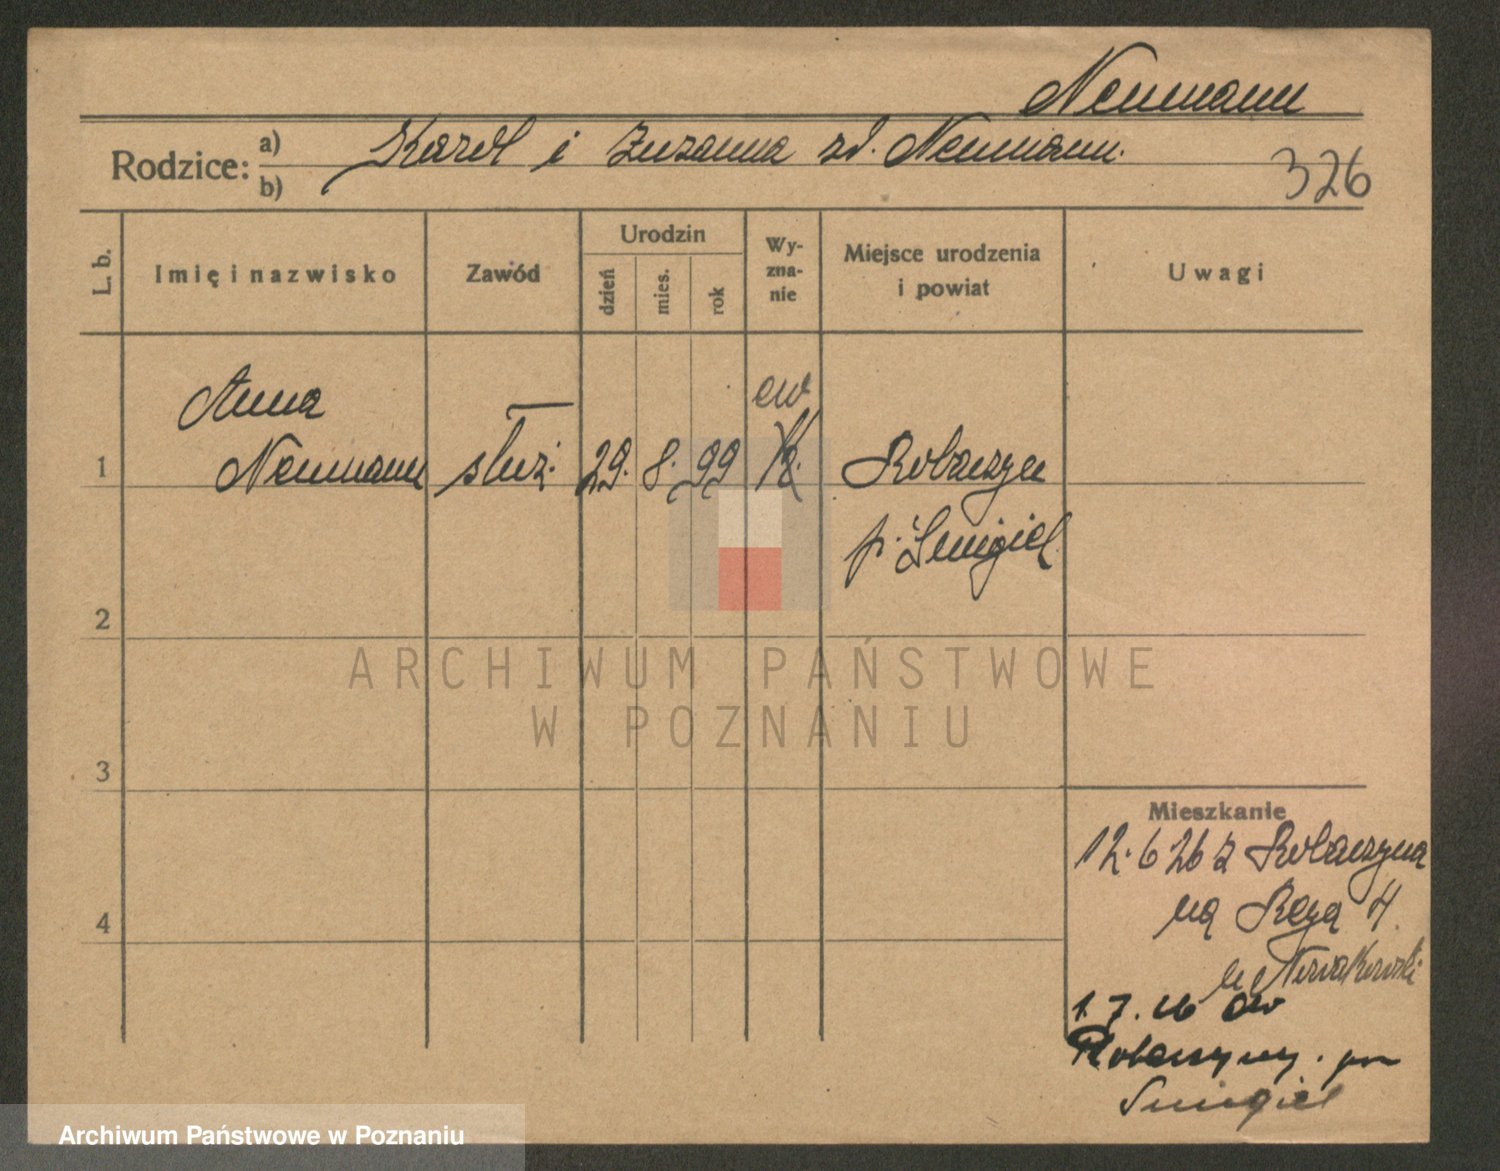 Neumann
Rodzice: a) Karol i Zuzanna zd. Neumann.
b)
326
L. b.
Imię i nazwisko
Zawód
Urodzin
dzień
mies.
rok
Wy-
zna-
nie
Miejsce urodzenia
i powiat
Uwagi
ew
Anna
1 Neumann służ. 29. 8. 99 k. Robaczyn
p. Śmigiel
2
3
4
ARCHIWUM PAŃSTWOWE
W POZNANIU
Mieszkanie
12.6 26 z Robaczyna
na 4
u Nowakowski
1.7.26 do
Robaczyny. pow
Smigiel
Archiwum Państwowe w Poznaniu